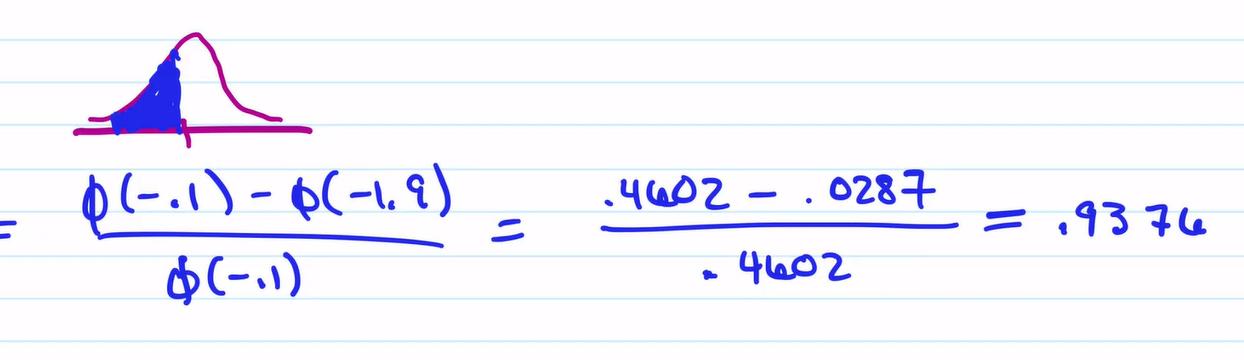 = ϕ(-.1) - ϕ(-1.9) / ϕ(-.1) = .4602 - .0287 / .4602 = .9376